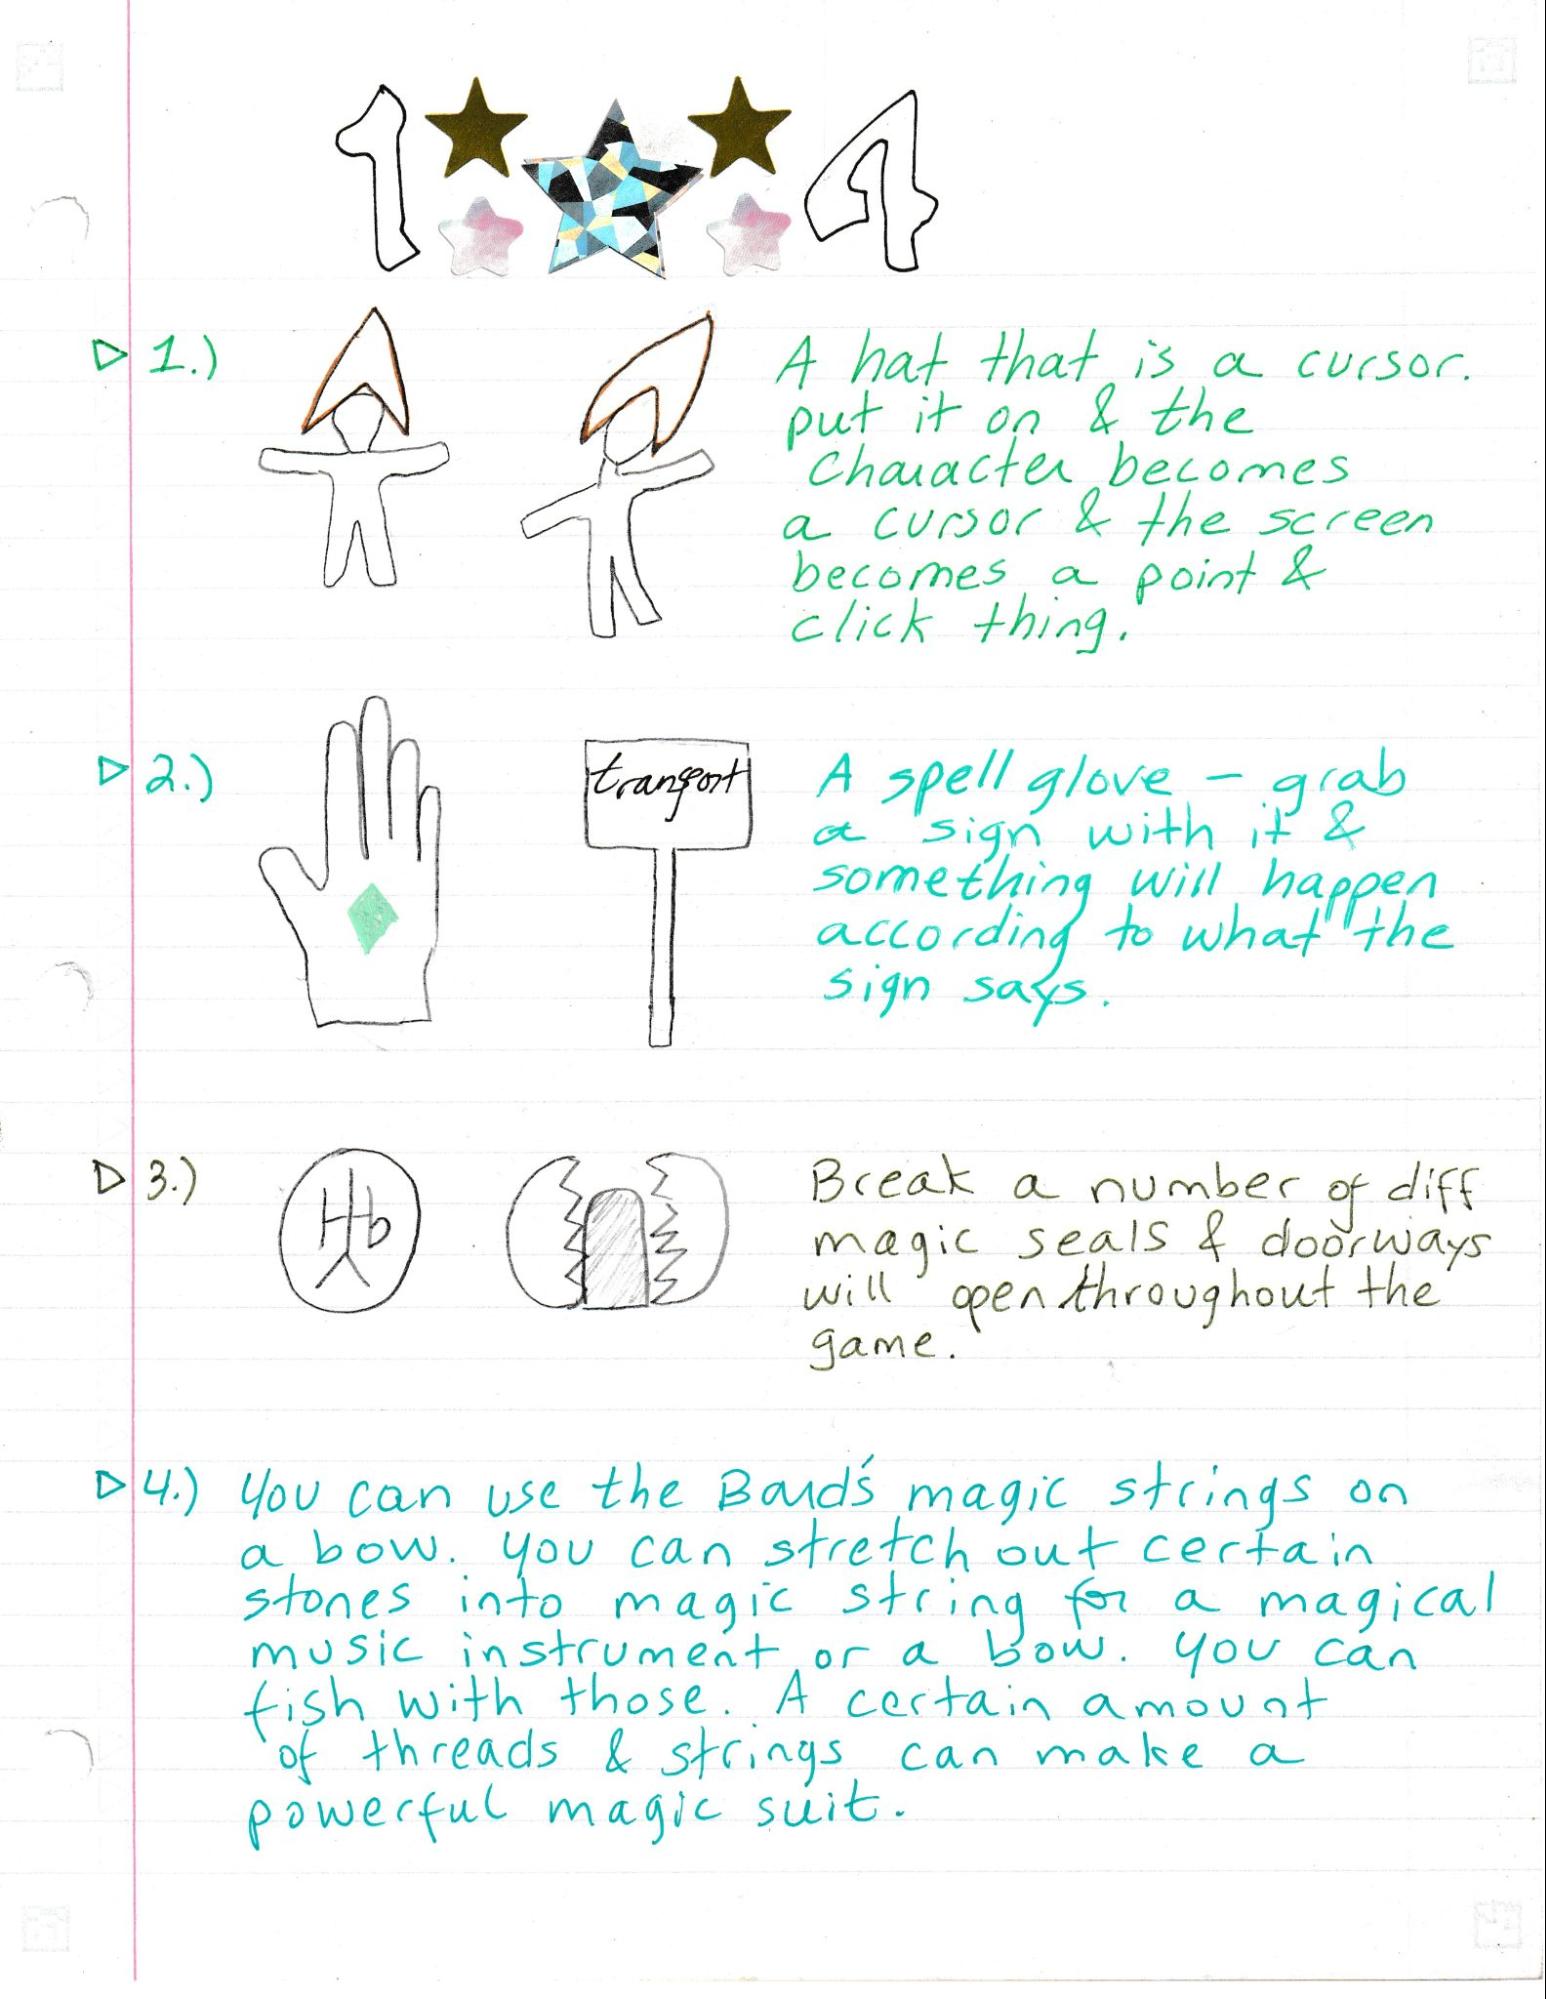 1 4
1.)
A hat that is a cursor.
put it on & the
character becomes
a cursor & the screen
becomes a point &
click thing.
2.)
transport
A spell glove – grab
a sign with it &
something will happen
according to what the
sign says.
3.)
Break a number of diff
magic seals & doorways
will open throughout the
game.
4.) You can use the Bard's magic strings on
a bow. You can stretch out certain
stones into magic string for a magical
music instrument or a bow. You can
fish with those. A certain amount
of threads & strings can make a
powerful magic suit.